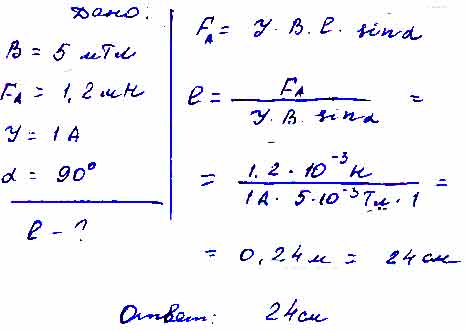 Дано:
B = 5 мТл
F_A = 1,2 мН
У = 1 А
α = 90°
l - ?
F_A = У · B · l · sin α
l = F_A / (У · B · sin α) =
= 1,2 · 10⁻³ Н / (1 А · 5 · 10⁻³ Тл · 1) =
= 0,24 м = 24 см
Ответ: 24 см